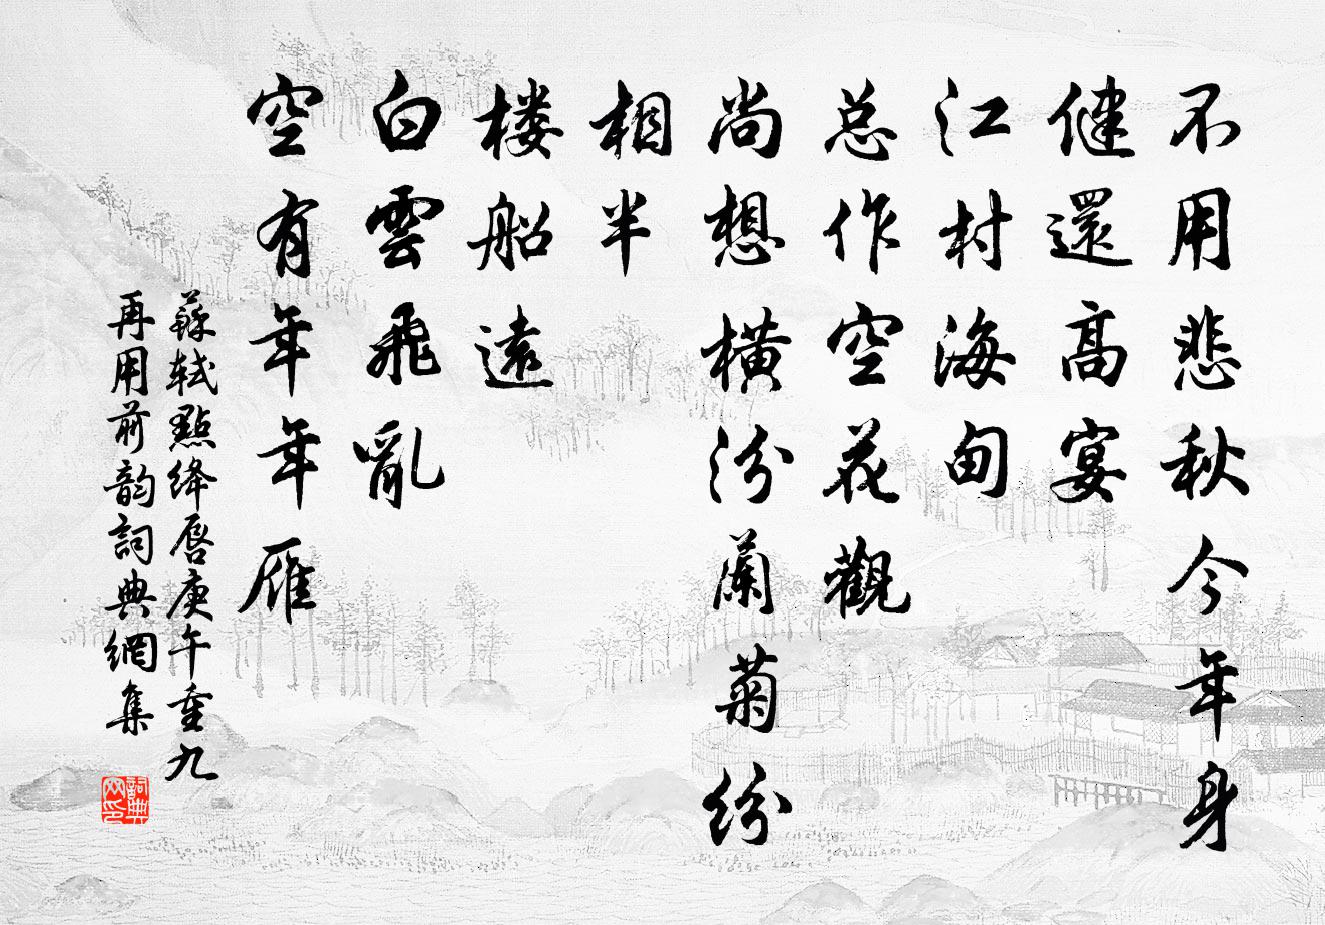 不用悲秋今年身
健還高宴
江村海甸
总作空花觀
尚想橫汾蘭菊紛
相半
楼船遠
白雲飛亂
空有年年雁
蘇軾點绛唇庚午重九
再用前韵詞典網集
詞典
网印